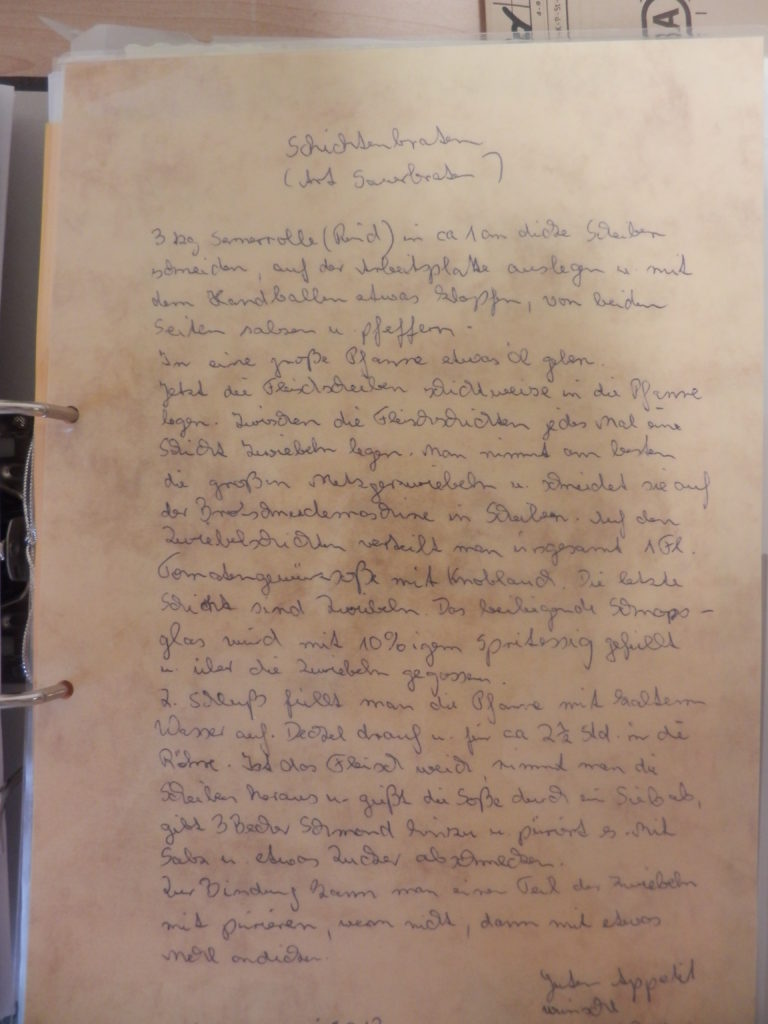 Schichtenbraten
(Art Sauerbraten)
3 kg Semerrolle (Rind) in ca 1 cm dicke Scheiben
schneiden, auf der Arbeitsplatte auslegen u. mit
dem Handballen etwas klopfen, von beiden
Seiten salzen u. pfeffern.
In eine große Pfanne etwas Öl geben.
Jetzt die Fleischscheiben schichtweise in die Pfanne
legen. Zwischen die Fleischschichten jedes Mal eine
Schicht Zwiebeln legen. Man nimmt am besten
die großen Metzgerzwiebeln u. schneidet sie auf
der Brotschneidemaschine in Scheiben. Auf den
Zwiebelschichten verteilt man insgesamt 1 Fl.
Tomatengewürzsoße mit Knoblauch. Die letzte
Schicht sind Zwiebeln. Das beiliegende Schnaps-
glas wird mit 10%igem Spritessig gefüllt
u. über die Zwiebeln gegossen.
Z. Schluß füllt man die Pfanne mit kaltem
Wasser auf. Deckel drauf u. für ca 2½ Std. in die
Röhre. Ist das Fleisch weich, nimmt man die
Scheiben heraus u. gießt die Soße durch ein Sieb ab,
gibt 3 Becher Schmand hinzu u. püriert es. Mit
Salz u. etwas Zucker abschmecken.
Zur Bindung kann man einen Teil der Zwiebeln
mit pürieren, wenn nicht, dann mit etwas
Mehl andicken.
Guten Appetit
wünscht